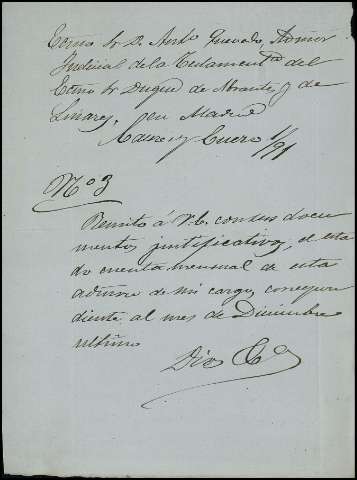 Exmo Sr D. Ando Quevedo, Admor
Judicial de la Testament del
Exmo Sr Duque de Abrantes y de
Linares, en Madrid
Enero 1/91
No 3
Remito á V.E. con sus docu
mentos justificativos, el esta
do cuenta mensual de esta
admon de mi cargo, correspon
diente al mes de Diciembre
ultimo
Dios